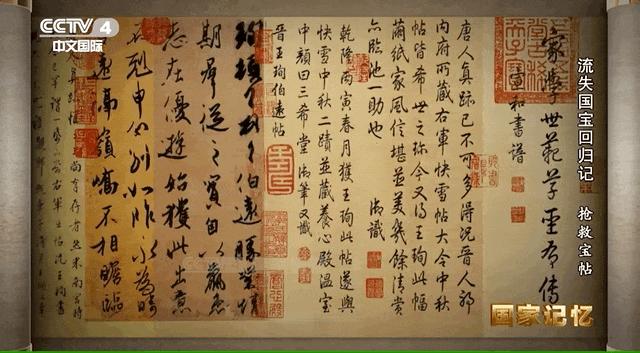 CCTV 4
中文国际
流失国宝回归记 抢救宝帖
家學世範草聖有傳
宣和書譜
唐人真跡已不可多得況晉人耶
内府所藏右軍快雪帖大令中秋
帖皆希世之珍今又得王珣此幅
繭紙家風信堪並美幾餘清賞
亦臨池一助也 御識
乾隆丙寅春月獲王珣此帖遂與
快雪中秋二蹟並藏養心殿溫室
中顏曰三希堂 御筆又識
晉王珣伯遠帖
珣頓首頓首伯遠勝業情
期群從之寶自以羸患
志在優遊始獲此出意
不剋申分別如昨永為疇
古遠隔嶺嶠不相瞻臨
国家记忆